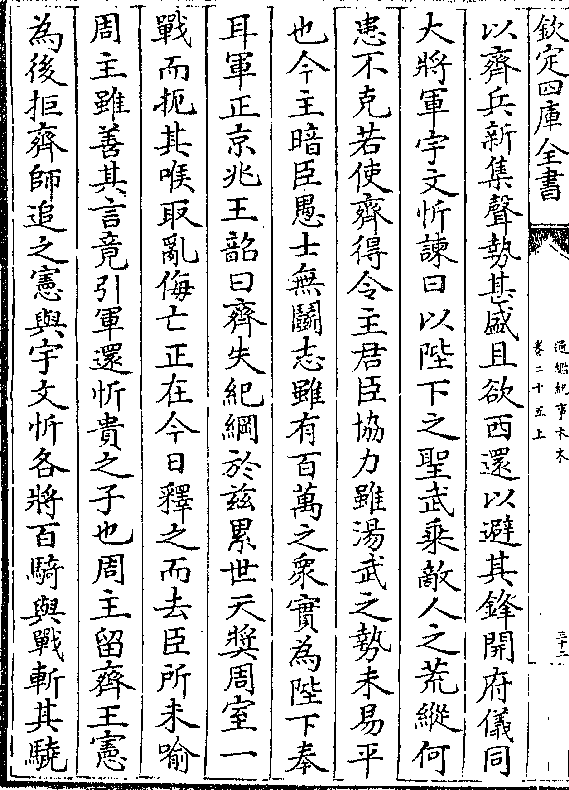 欽定四庫全書
通鑑紀事本末
卷二十五上
三十二
以齊兵新集聲勢甚盛且欲西還以避其鋒開府儀同
大將軍宇文忻諫曰以陛下之聖武乗敵人之荒縱何
患不克若使齊得令主君臣協力雖湯武之勢未易平
也今主暗臣愚士無鬭志雖有百萬之衆實為陛下奉
耳軍正京兆王韶曰齊失紀綱於兹累世天奬周室一
戰而扼其喉取亂侮亡正在今日釋之而去臣所未喻
周主雖善其言竟引軍還忻貴之子也周主留齊王憲
為後拒齊師追之憲與宇文忻各將百騎與戰斬其驍